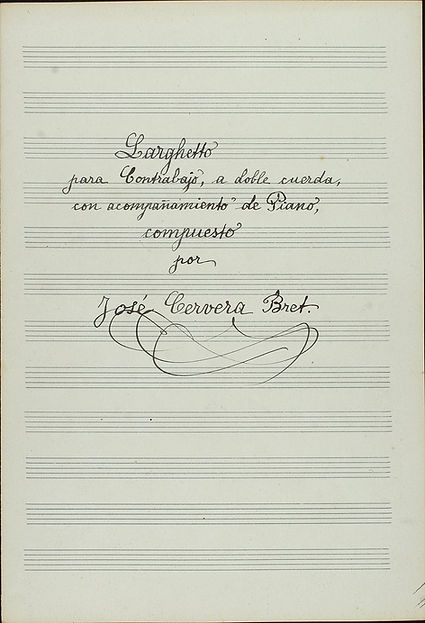 Larghetto
para Contrabajo, a doble cuerda,
con acompañamiento de Piano,
compuesto
por
José Cervera Bret.